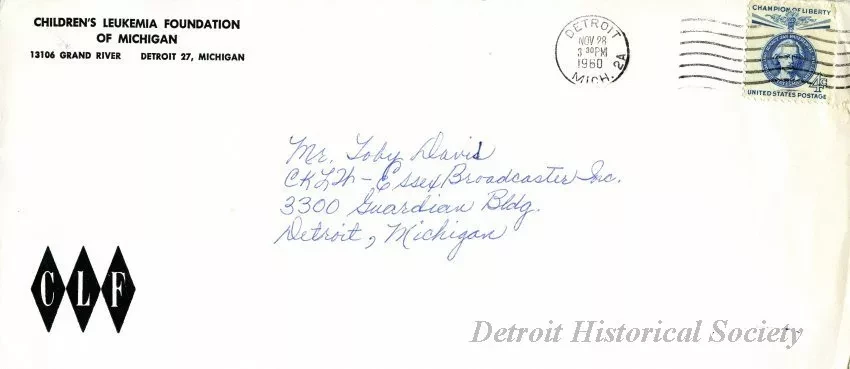 CHILDREN'S LEUKEMIA FOUNDATION
OF MICHIGAN
13106 GRAND RIVER DETROIT 27, MICHIGAN
DETROIT
NOV 28
3 30 PM
1960
MICH. 2A
CHAMPION OF LIBERTY
4¢
UNITED STATES POSTAGE
Mr. Toby David
CKLW - Essex Broadcaster Inc.
3300 Guardian Bldg.
Detroit, Michigan
CLF
Detroit Historical Society